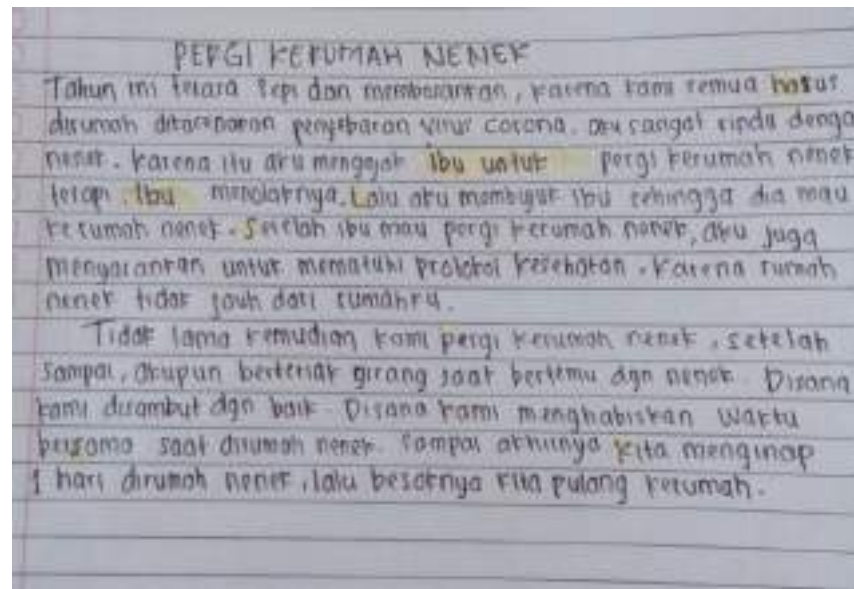 PERGI KERUMAH NENEK
Tahun ini terasa sepi dan membosankan, karena kami semua harus
dirumah dikarenakan penyebaran virus corona. aku sangat rindu denga
nenek. karena itu aku mengajak ibu untuk pergi kerumah nenek
tetapi ibu menolaknya. Lalu aku membujuk ibu sehingga dia mau
kerumah nenek. Setelah ibu mau pergi kerumah nenek, aku juga
menyarankan untuk mematuhi protokol kesehatan. Karena rumah
nenek tidak jauh dari rumahku.
Tidak lama kemudian kami pergi kerumah nenek, setelah
sampai, akupun berteriak girang saat bertemu dgn nenek. Disana
kami disambut dgn baik. Disana kami menghabiskan waktu
bersama saat dirumah nenek. Sampai akhirnya kita menginap
1 hari dirumah nenek, lalu besoknya kita pulang kerumah.